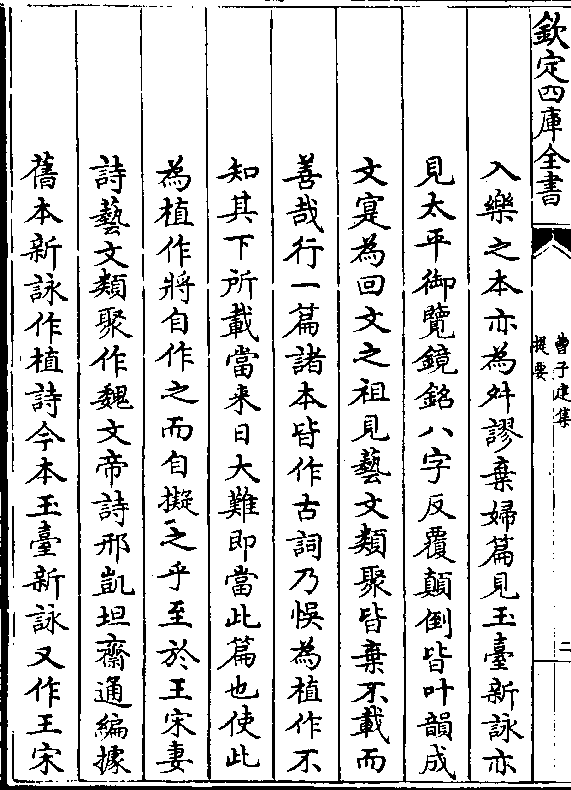 欽定四庫全書
曹子建集
提要
二
入樂之本亦為舛謬棄婦篇見玉臺新詠亦
見太平御覽鏡銘八字反覆顛倒皆叶韻成
文寔為回文之祖見藝文類聚皆棄不載而
善哉行一篇諸本皆作古詞乃悞為植作不
知其下所載當来日大難即當此篇也使此
為植作將自作之而自擬之乎至於王宋妻
詩藝文類聚作魏文帝詩邢凱坦齋通編據
舊本新詠作植詩今本玉臺新詠又作王宋